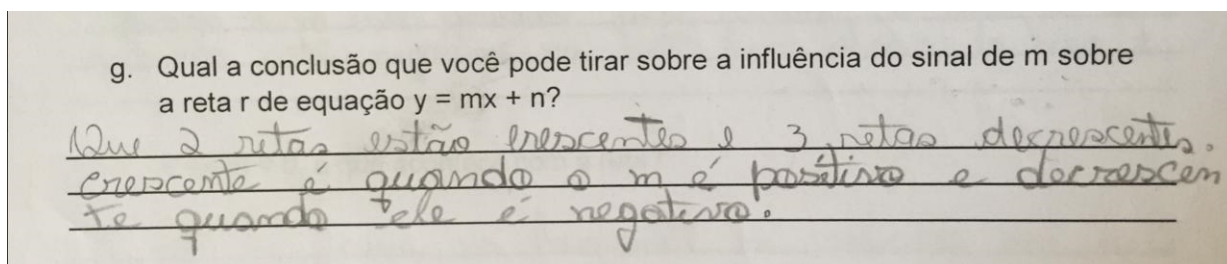 g. Qual a conclusão que você pode tirar sobre a influência do sinal de m sobre
a reta r de equação y = mx + n?
Que 2 retas estão crescentes e 3 retas decrescentes.
crescente é quando o m é positivo e decrescen
te quando ele é negativo.